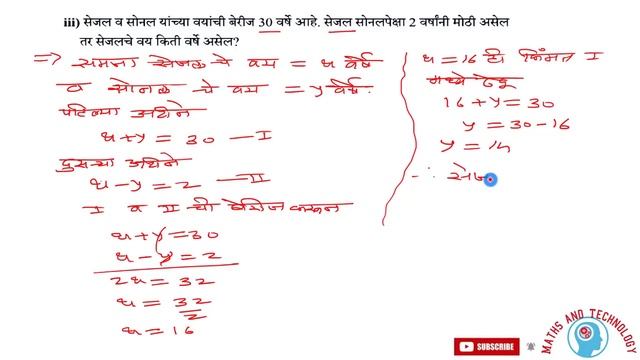 iii) सेजल व सोनल यांच्या वयांची बेरीज 30 वर्षे आहे. सेजल सोनलपेक्षा 2 वर्षांनी मोठी असेल
तर सेजलचे वय किती वर्षे असेल?
⇒ समजा सेजल चे वय = x वर्षे
व सोनल चे वय = y वर्षे.
पहिल्या अटीने
x + y = 30 — I
दुसऱ्या अटीने
x - y = 2 — II
I व II ची बेरीज करून
x + y = 30
x - y = 2
2x = 32
x = 32
2
x = 16
x = 16 ही किंमत I
मध्ये ठेवू
16 + y = 30
y = 30 - 16
y = 14
∴ सेज
SUBSCRIBE
MATHS AND TECHNOLOGY